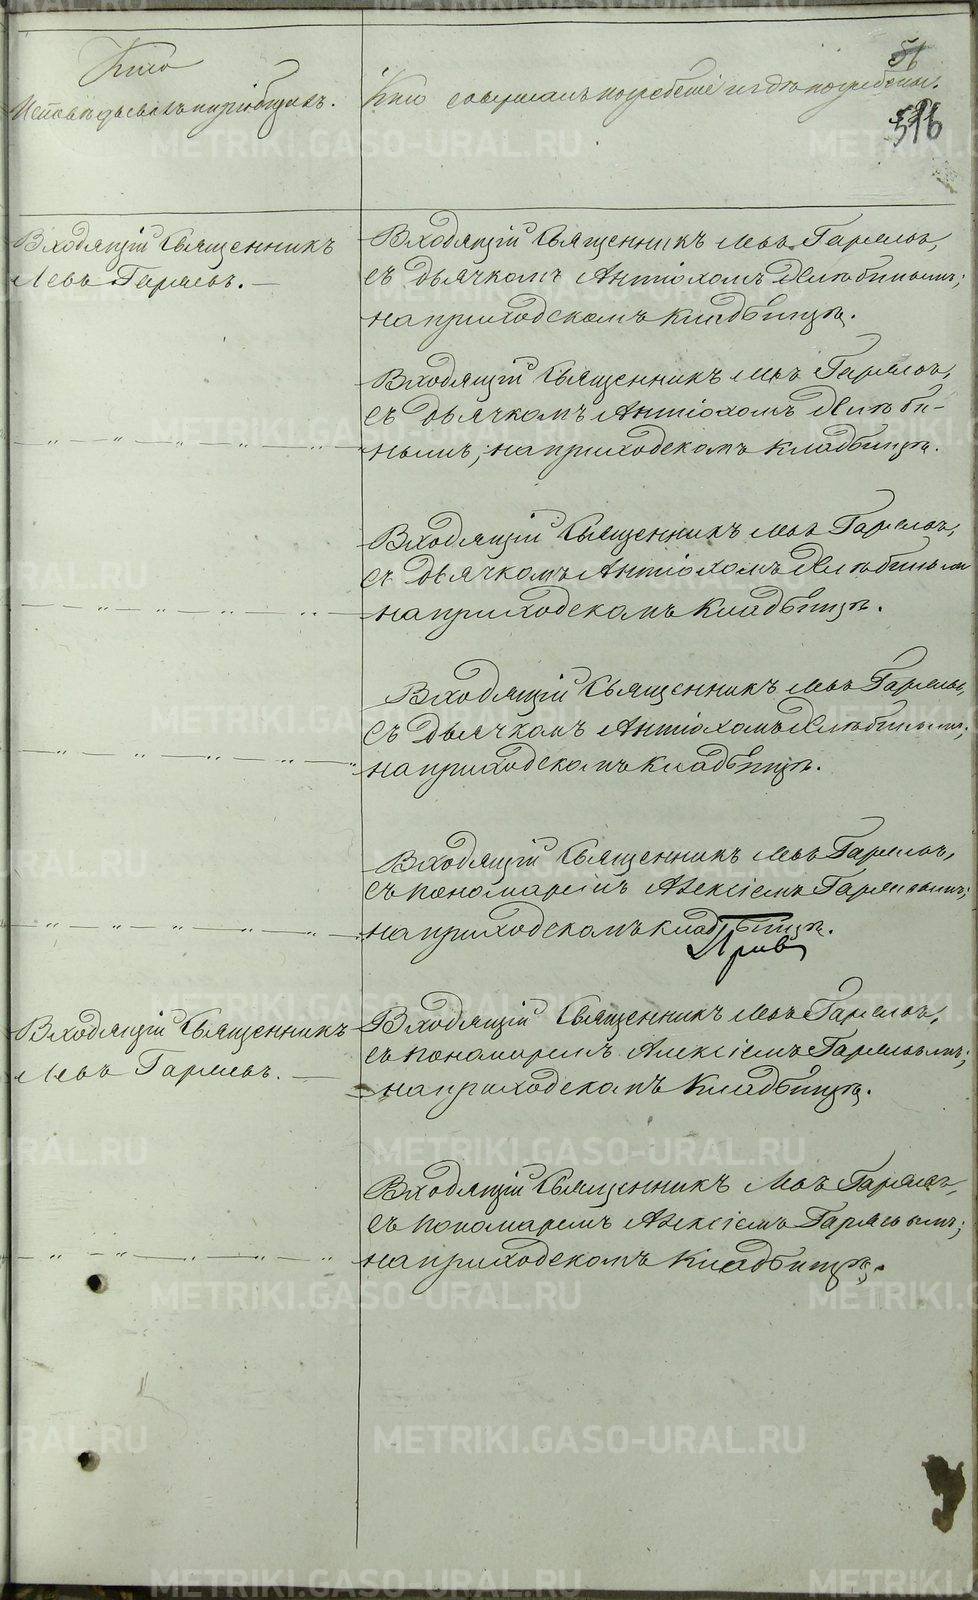 51
516
Кто
исповѣдывалъ и пріобщалъ.
Кто совершалъ погребеніе и гдѣ погребены.
Входящій Священникъ
Левъ Гаряевъ. —
Входящій Священникъ Левъ Гаряевъ,
съ дьячкомъ Антіохомъ Хлѣбинымъ;
на приходскомъ кладбищѣ.
Входящій Священникъ Левъ Гаряевъ,
съ дьячкомъ Антіохомъ Хлѣби-
— „ — „ — „ — „ — „ — нымъ; на приходскомъ кладбищѣ.
Входящій Священникъ Левъ Гаряевъ,
съ дьячкомъ Антіохомъ Хлѣбинымъ
— „ — „ — „ — „ — на приходскомъ кладбищѣ.
Входящій Священникъ Левъ Гаряевъ,
съ дьячкомъ Антіохомъ Хлѣбинымъ;
— „ — „ — „ — „ — на приходскомъ кладбищѣ.
Входящій Священникъ Левъ Гаряевъ,
съ пономаремъ Алексіемъ Гаряевымъ;
— „ — „ — „ — „ — на приходскомъ кладбищѣ.
Входящій Священникъ
Левъ Гаряевъ. —
Входящій Священникъ Левъ Гаряевъ,
съ пономаремъ Алексіемъ Гаряевымъ;
на приходскомъ кладбищѣ.
Входящій Священникъ Левъ Гаряевъ,
съ пономаремъ Алексіемъ Гаряевымъ;
— „ — „ — „ — „ — на приходскомъ кладбищѣ.
METRIKI.GASO-URAL.RU